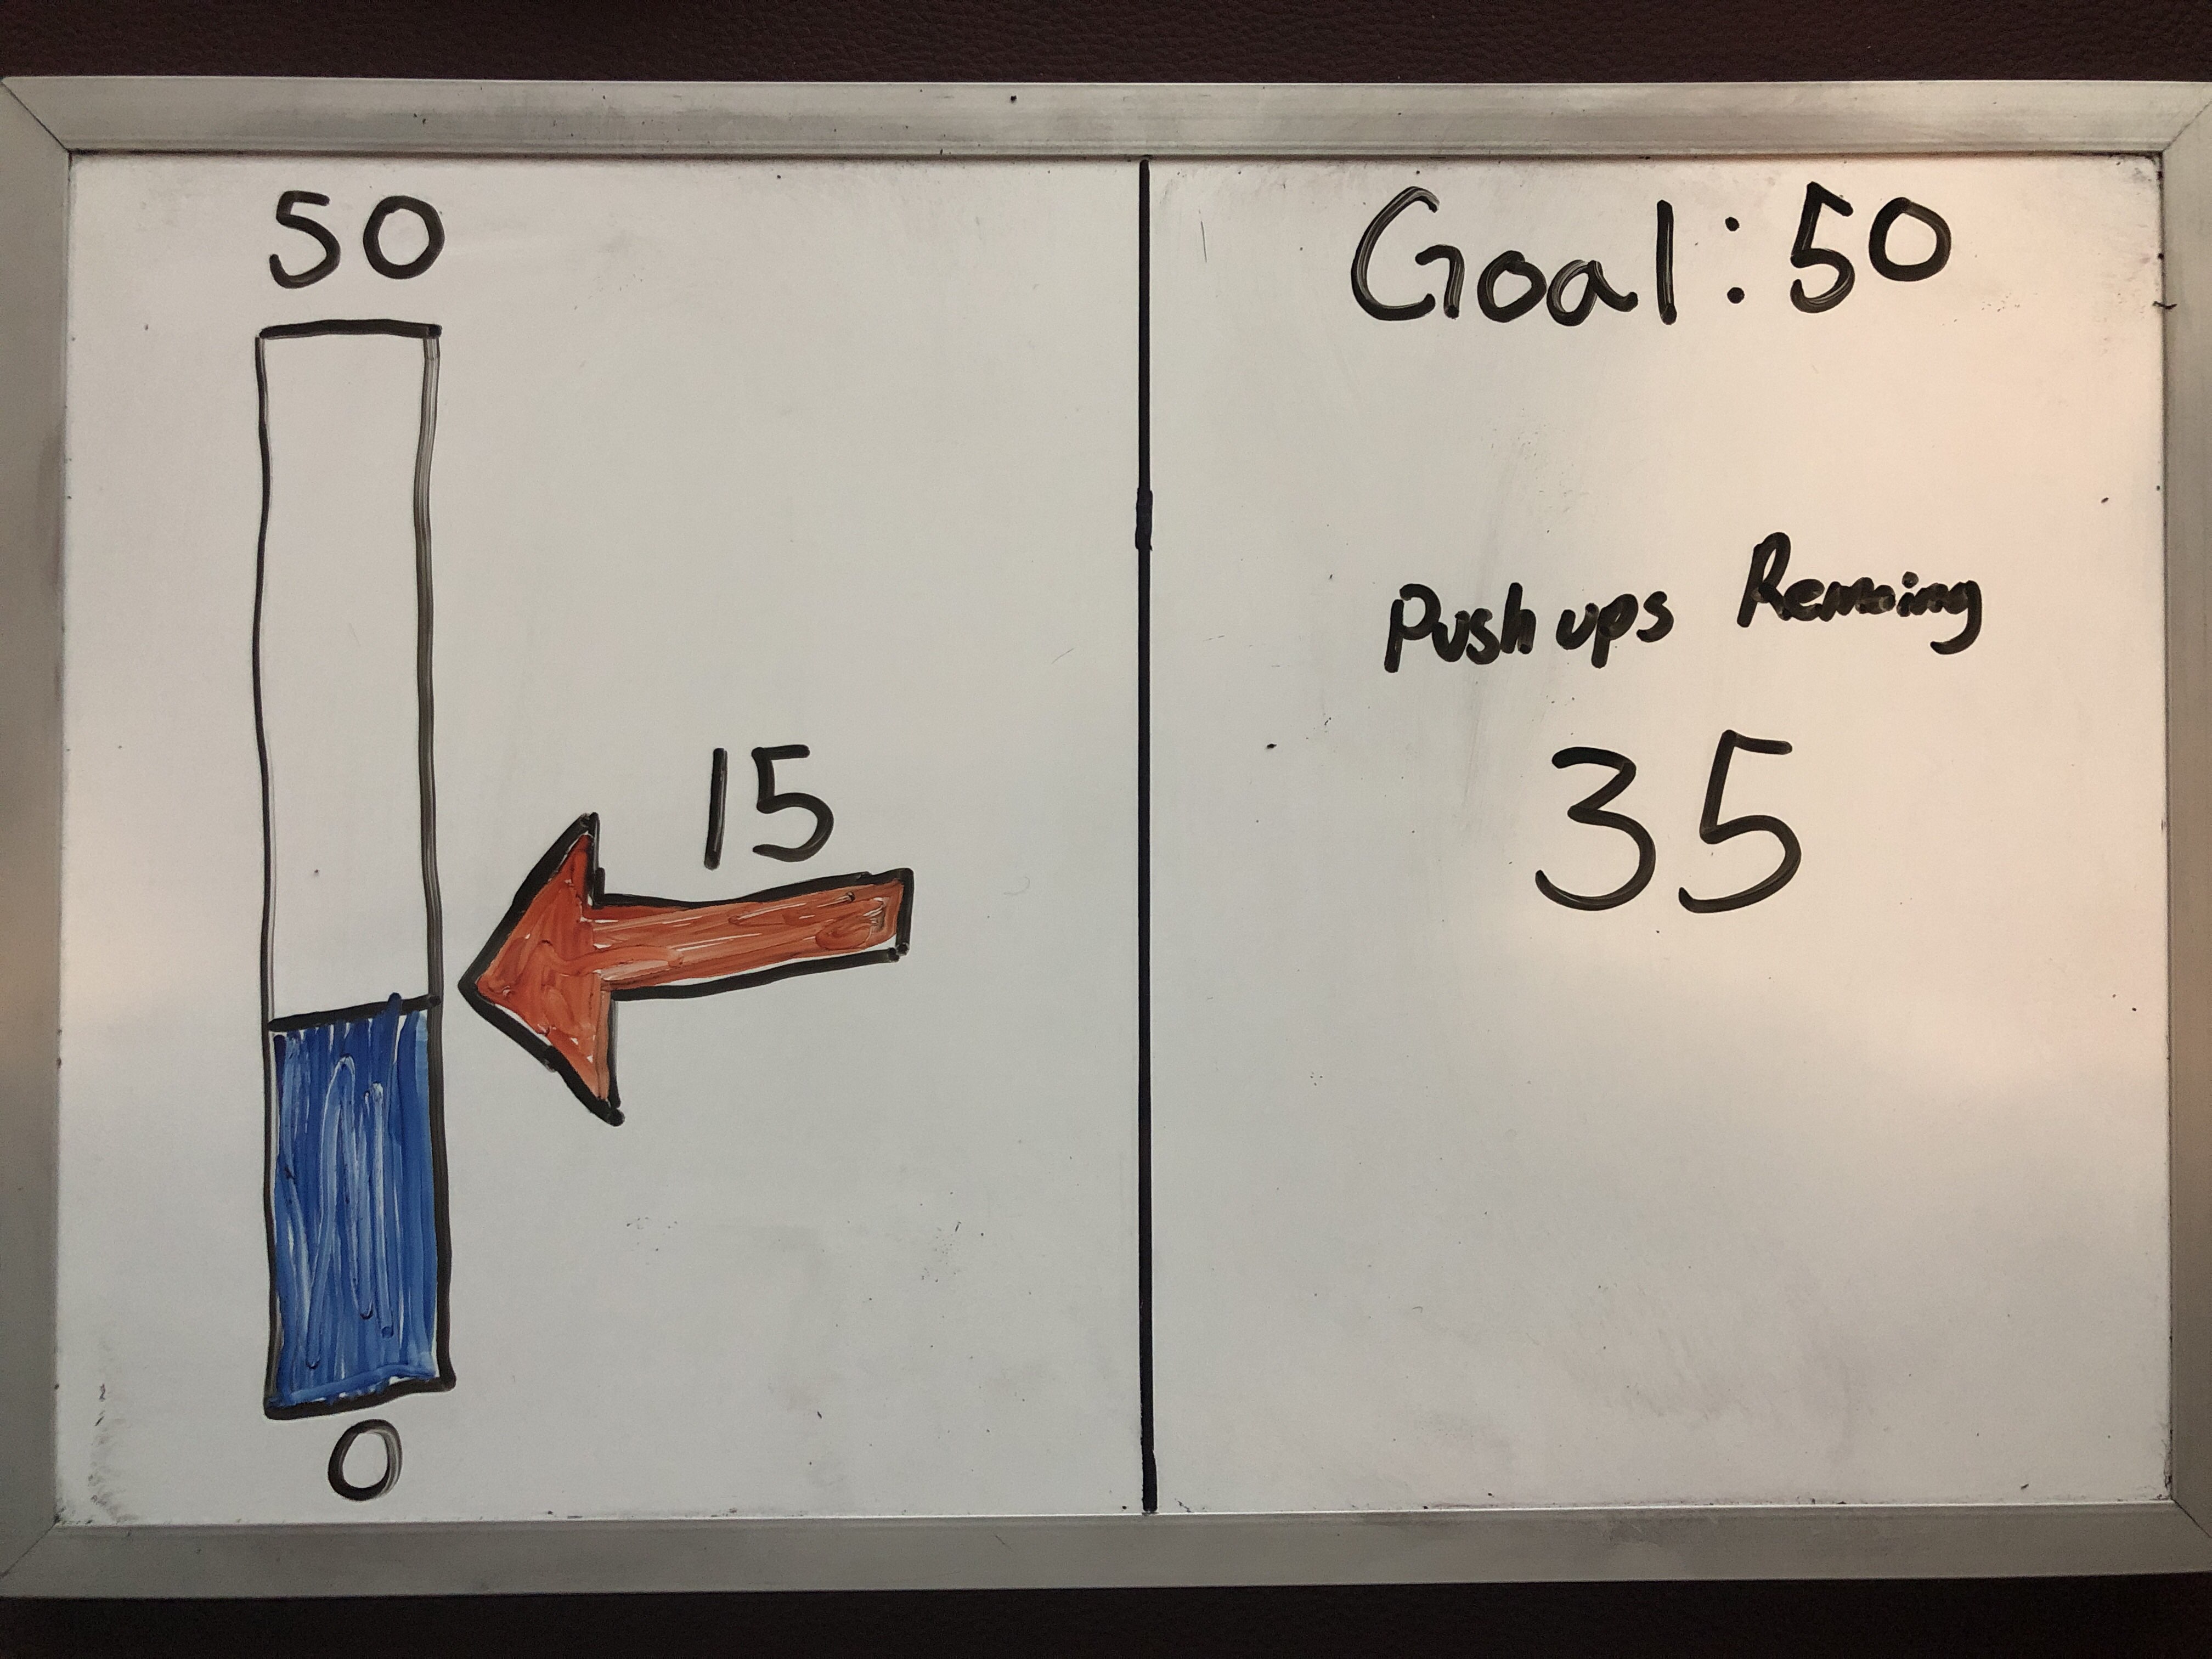 50
15
0
Goal: 50
Push ups Remaing
35